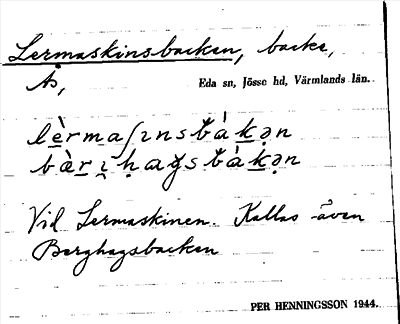 Lermaskinsbacken, backe,
Ås, Eda sn, Jösse hd, Värmlands län.
lèrmaʃınsbák̠ən
bàr̠ı̣ḥags bák̠ən
Vid Lermaskinen. Kallas även
Berghagsbacken
PER HENNINGSSON 1944.